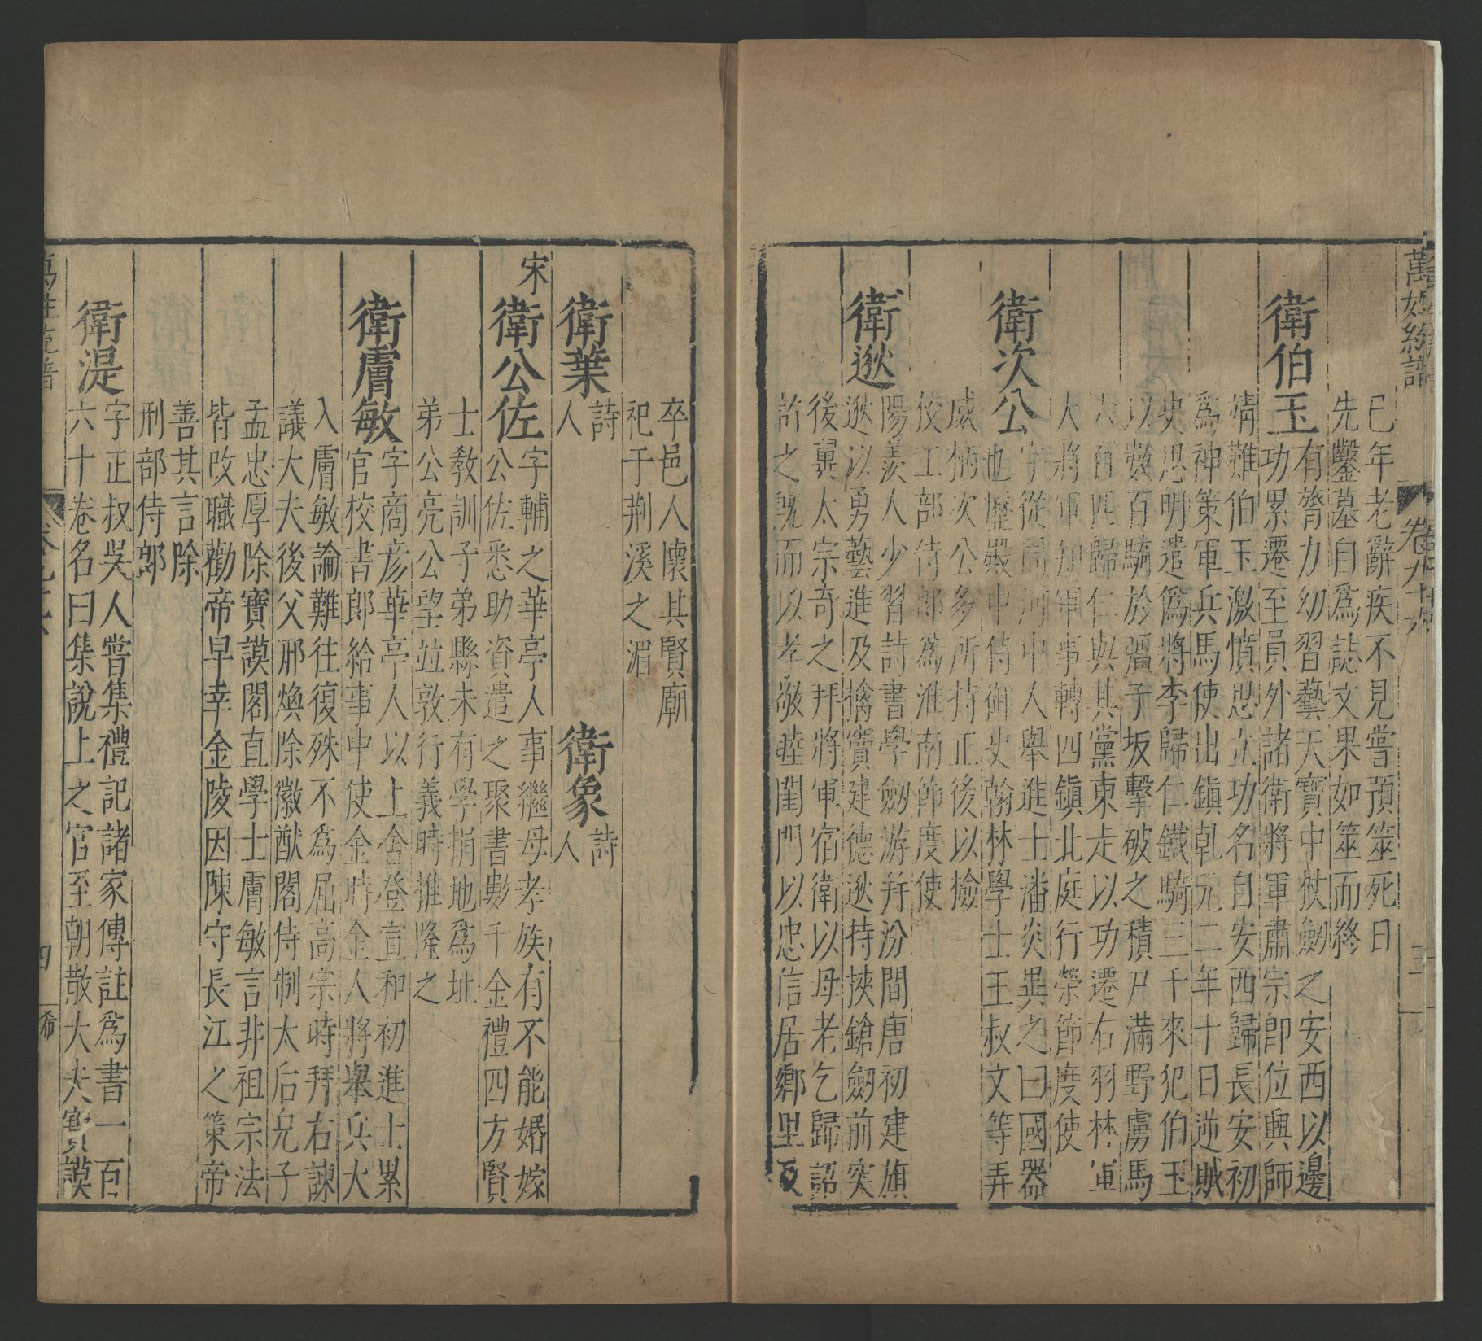 萬姓統譜 卷九十六
已年老辭疾不見嘗預筮死日
先鑿墓自爲誌文果如筮而終
衛伯玉
有膂力幼習藝天寶中杖劒之安西以邊
功累遷至員外諸衛將軍肅宗卽位興師
靖難伯玉激憤思立功名自安西歸長安初
爲神策軍兵馬使出鎮乾元二年十日逆賊
史思明遣僞將李歸仁鐵騎三千來犯伯玉
以數百騎於彊子坂擊破之積尸滿野虜馬
六百四歸仁與其黨東走以功遷右羽林軍
大將軍知軍事轉四鎮北庭行營節度使
衛次公
字從周河中人舉進士潘炎異之曰國器
也歷殿中侍御史翰林學士王叔文等弄
威柄次公多所持正後以檢
校工部侍郎爲淮南節度使
衛逖
陽羨人少習詩書學劒游并汾間唐初建旗
逖以勇藝進及擒竇建德逖持挾鎗劒前突
後翼太宗奇之拜將軍宿衛以母老乞歸詔
許之旣而以孝敬睦閨門以忠信居鄉里及
卒邑人懷其賢廟
祀于荆溪之湄
衛葉 詩人
衛象 詩人
宋
衛公佐
字輔之華亭人事繼母孝族有不能婚嫁
公佐悉助資遣之聚書數千金禮四方賢
士教訓子弟縣未有學捐地爲址
弟公亮公望竝敦行義時推隆之
衛膚敏
字商彦華亭人以上舍登宣和初進士累
官校書郎給事中使金時金人將舉兵大
入膚敏論難往復殊不爲屈高宗時拜右諫
議大夫後父邢煥除徽猷閣侍制太后兄子
孟忠厚除寶謨閣直學士膚敏言非祖宗法
皆改職勸帝早幸金陵因陳守長江之策帝
善其言除
刑部侍郎
衛湜
字正叔吳人嘗集禮記諸家傳註爲書一百
六十卷名曰集說上之官至朝散大夫寶謨
萬姓統譜 卷九十六 四